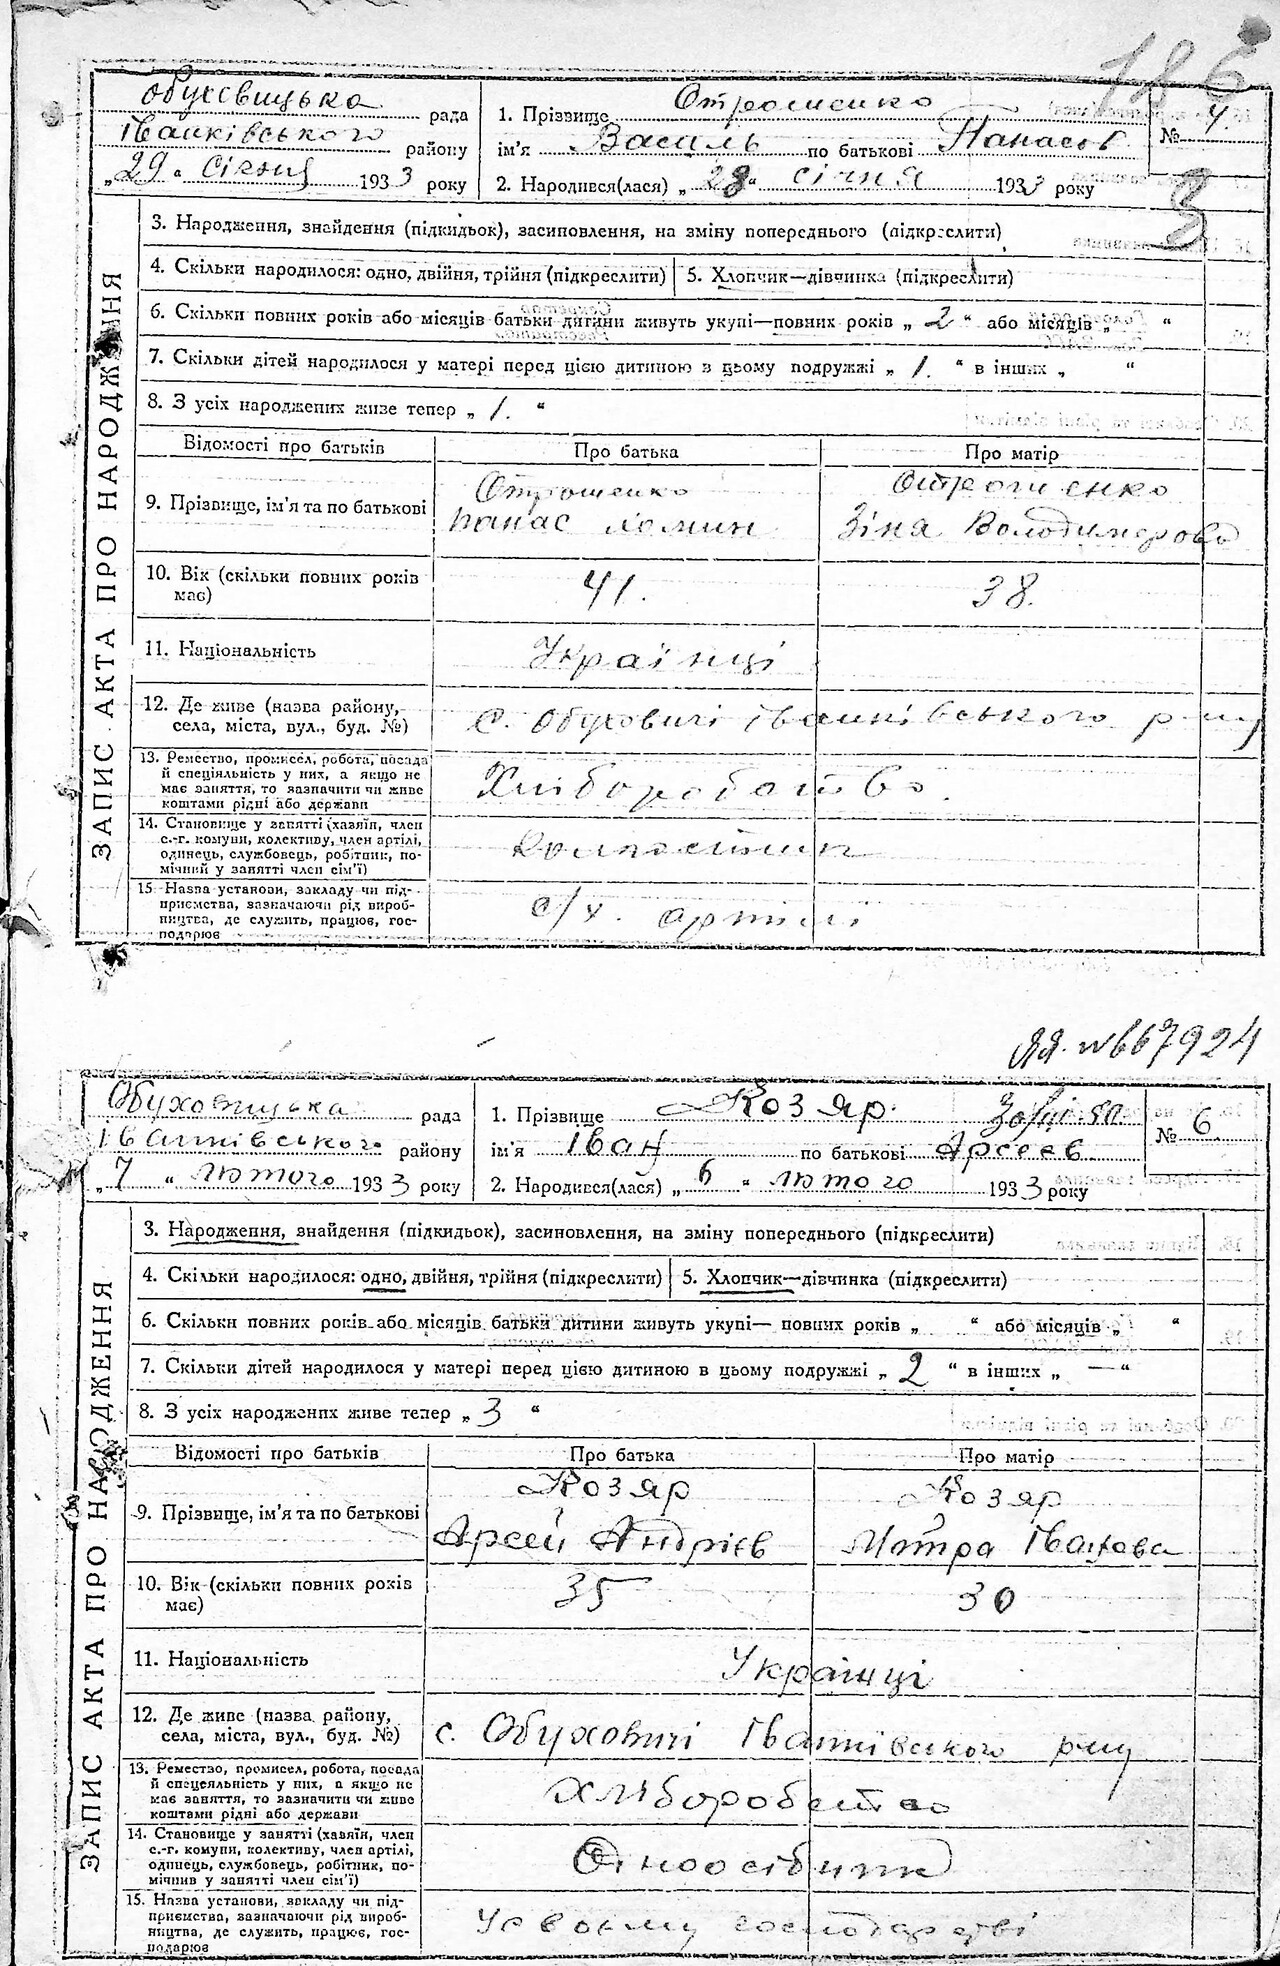 186
Обуховицька рада
Іванківського району
„29" Січня 1933 року
1. Прізвище Отрошенко
ім'я Василь по батькові Панасов
2. Народився(лася) „28" січня 1933 року
№ 4.
3
ЗАПИС АКТА ПРО НАРОДЖЕННЯ
3. Народження, знайдення (підкидьок), засиновлення, на зміну попереднього (підкреслити)
4. Скільки народилося: одно, двійня, трійня (підкреслити) 5. Хлопчик—дівчинка (підкреслити)
6. Скільки повних років або місяців батьки дитини живуть укупі—повних років „ 2 " або місяців „ "
7. Скільки дітей народилося у матері перед цією дитиною в цьому подружжі „ 1. " в інших „ "
8. З усіх народжених живе тепер „ 1. "
Відомості про батьків Про батька Про матір
9. Прізвище, ім'я та по батькові
Отрошенко Отрошенко
Панас Хомин Зіна Володимерова
10. Вік (скільки повних років має) 41. 38.
11. Національність Українці
12. Де живе (назва району, села, міста, вул., буд. №) с. Обуховичі Іванківського р-ну
13. Ремество, промисел, робота, посада
й спеціяльність у них, а якщо не
має заняття, то зазначити чи живе
коштами рідні або держави
Хліборобство.
14. Становище у занятті (хазяїн, член
с.-г. комуни, колективу, член артілі,
одинець, службовець, робітник, по-
мічний у занятті член сім'ї)
Колгоспник
15. Назва установи, закладу чи під-
приємства, зазначаючи рід вироб-
ництва, де служить, працює, гос-
подарює
с/х. артілі
ЯЯ. №667924
Обуховицька рада
Іванківського району
„7" лютого 1933 року
1. Прізвище Козяр
ім'я Іван по батькові Арсеєв
2. Народився(лася) „6" лютого 1933 року
№ 6
ЗАПИС АКТА ПРО НАРОДЖЕННЯ
3. Народження, знайдення (підкидьок), засиновлення, на зміну попереднього (підкреслити)
4. Скільки народилося: одно, двійня, трійня (підкреслити) 5. Хлопчик—дівчинка (підкреслити)
6. Скільки повних років або місяців батьки дитини живуть укупі— повних років „ " або місяців „ "
7. Скільки дітей народилося у матері перед цією дитиною в цьому подружжі „ 2 " в інших „ — "
8. З усіх народжених живе тепер „ 3 "
Відомості про батьків Про батька Про матір
9. Прізвище, ім'я та по батькові
Козяр Козяр
Арсей Андрієв Мотра Іванова
10. Вік (скільки повних років має) 35 30
11. Національність Українці
12. Де живе (назва району, села, міста, вул., буд. №) с. Обуховичі Іванківського р-ну
13. Ремество, промисел, робота, посада
й спецеяльність у них, а якщо не
має заняття, то зазначити чи живе
коштами рідні або держави
Хліборобство
14. Становище у занятті (хазяїн, член
с.-г. комуни, колективу, член артілі,
одинець, службовець, робітник, по-
мічнив у занятті член сім'ї)
Одноосібник
15. Назва установи, закладу чи під-
приємства, зазначаючи рід вироб-
ництва, де служить, працює, гос-
подарює
У своєму господарстві